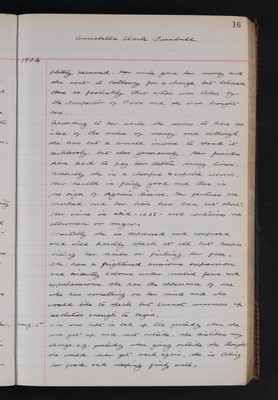 16
Annabella Clark Turnbull
1904
pletely recovered. Her uncle gave her money and
she went to Rothesay for a change but behaved
there so foolishly that action was taken by
the Inspector of Poor and she was brought
here.
According to her uncle she seems to have no
idea of the value of money and although
she has but a small income to spend it
recklessly but also generously. Her
have had to pay her debts many times.
Naturally she is a cheerful & capable woman.
Her health is fairly good and there is
no sign of organic disease. Her pulse are
marked and her hair has been cut short.
Her urine is acid - 1022 - and contains no
albumen or sugar.
Mentally she is depressed and confused
and will hardly speak at all but keeps
biting her nails or picking her face.
She has a frightened anxious expression
and evidently labours under morbid fears and
apprehensions. She has the appearance of one
who has something on her mind and who
would like to speak but cannot summon up
resolution enough to begin.
Aug. 2nd
She was kept in bed up till yesterday when she
was got up and sent outside. She dislikes any
change e.g. yesterday when going outside she thought
she would never get back again. She is taking
her food and sleeping fairly well.